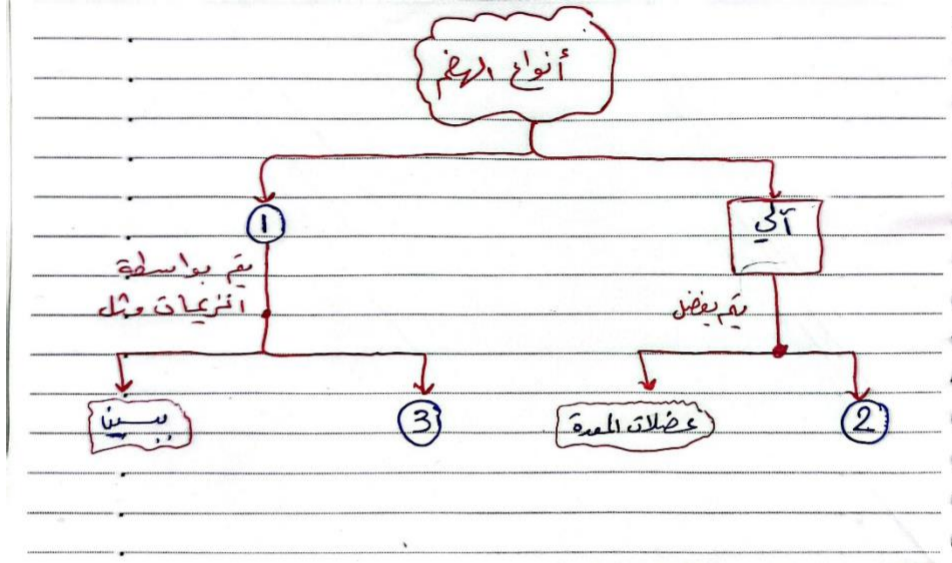 أنواع الهضم
آلي
1
يتم بواسطة
انزيمات مثل
يتم بفضل
2
عضلات المعدة
3
ببسين